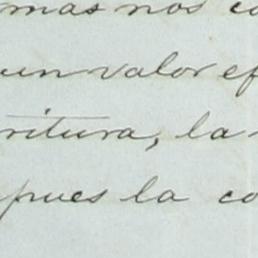 mas nos co
un valor ef
ritura, la
pues la co